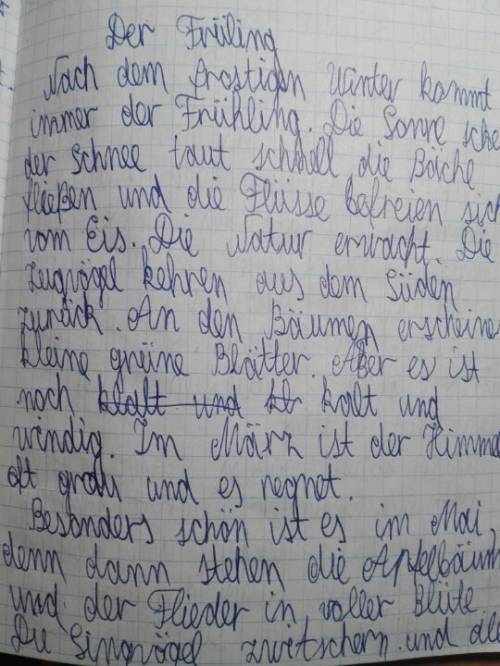 Der Früling
Nach dem frostigen Winter kommt
immer der Frühling. Die Sonne sche
der Schnee taut schnell die Bäche
fließen und die Flüsse befreien sich
vom Eis. Die Natur erwacht. Die
Zugvögel kehren aus dem Süden
zurück. An den Bäumen erscheine
kleine grüne Blätter. Aber es ist
noch kalt und
windig. Im März ist der Himme
oft grau und es regnet.
Besonders schön ist es im Mai,
denn dann stehen die Apfelbäum
und der Flieder in voller Blüte
Die Singvögel zwitschern und